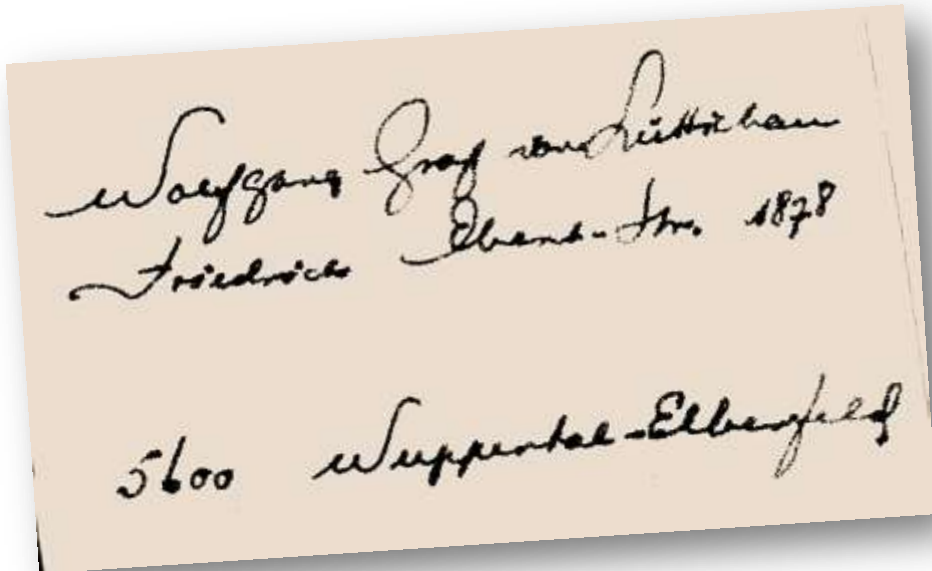 Wolfgang Graf von Lüttichau
Friedrich Ebert-Str. 1878
5600 Wuppertal-Elberfeld